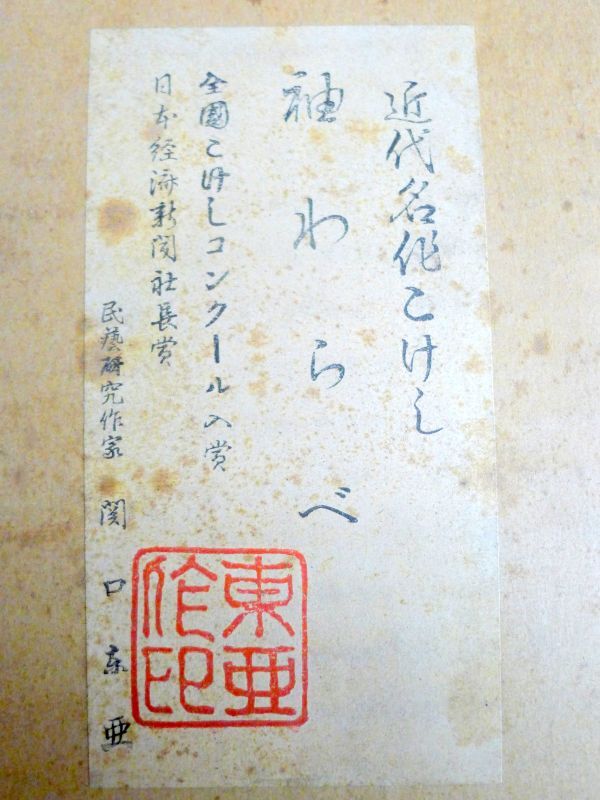 近代名作こけし
袖わらべ
全國こけしコンクール入賞
日本経済新聞社長賞
民藝研究作家 関口東亜
東亜
作印